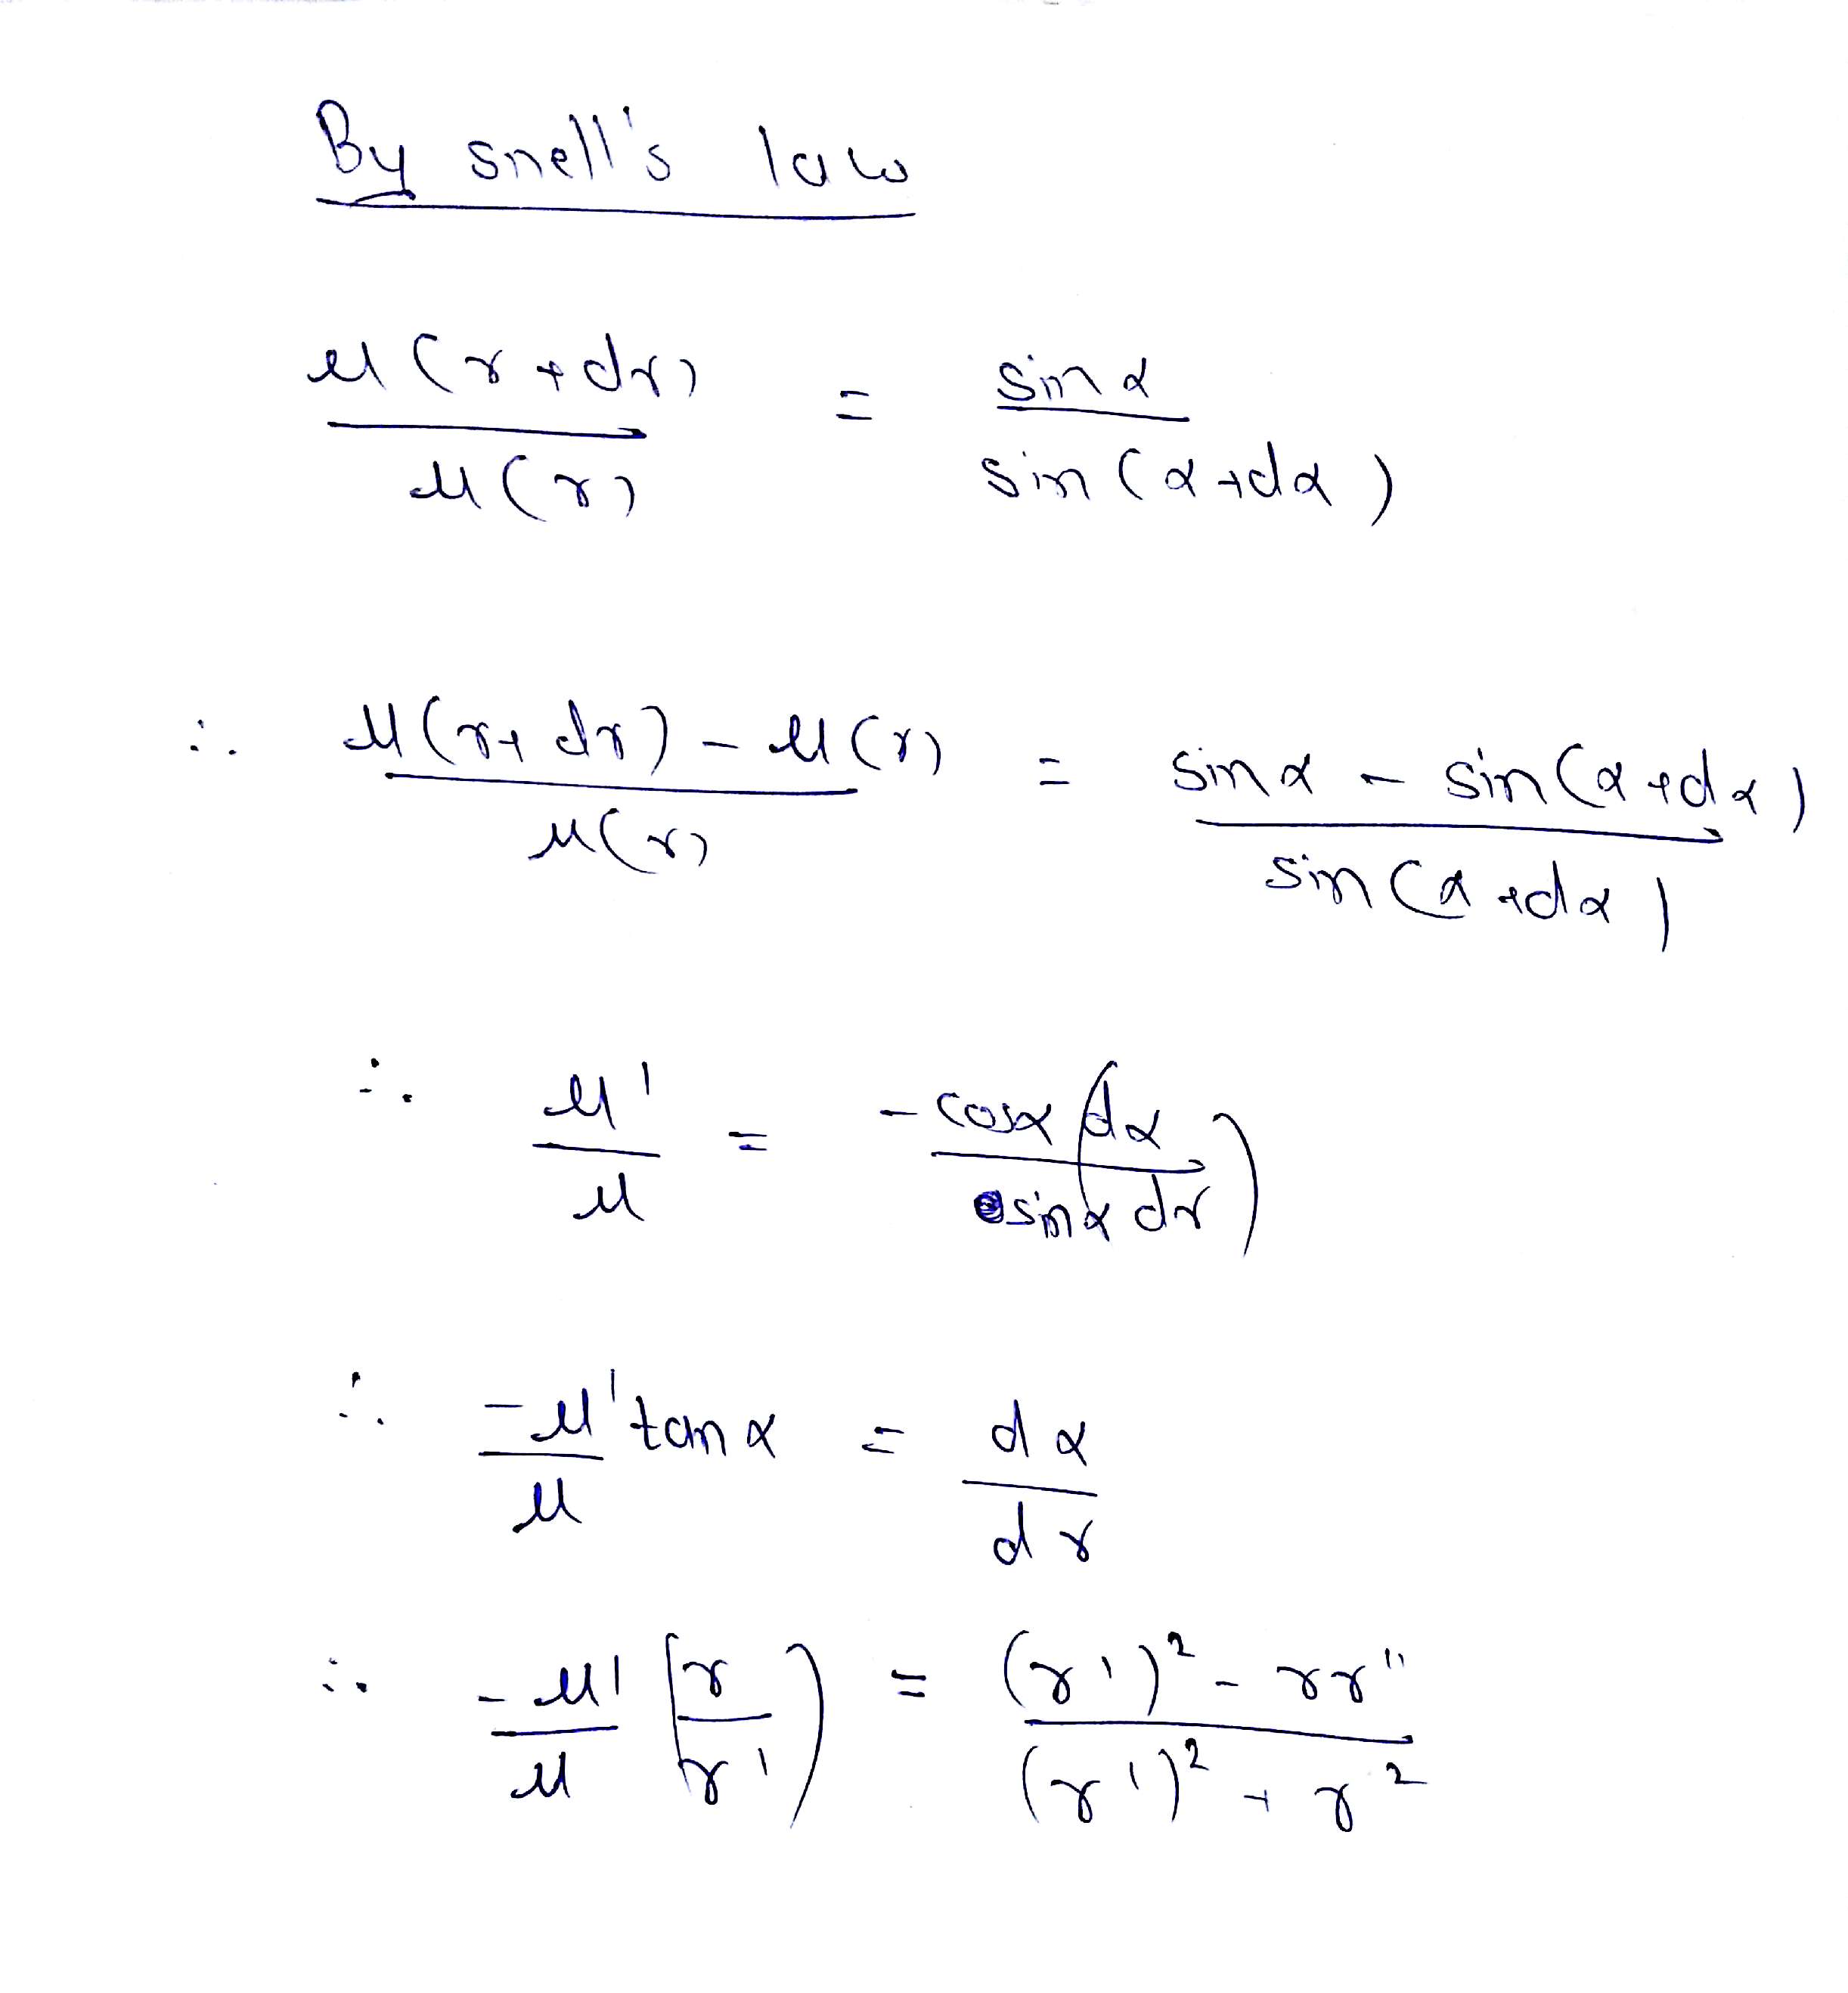 By snell's law
μ(r+dr) / μ(r) = sinα / sin(α+dα)
∴ μ(r+dr) - μ(r) / μ(r) = sinα - sin(α+dα) / sin(α+dα)
∴ μ' / μ = -cosα / sinα (dα / dr)
∴ -μ' / μ tanα = dα / dr
∴ -μ' / μ (r / r') = (r')² - rr'' / (r')² + r²